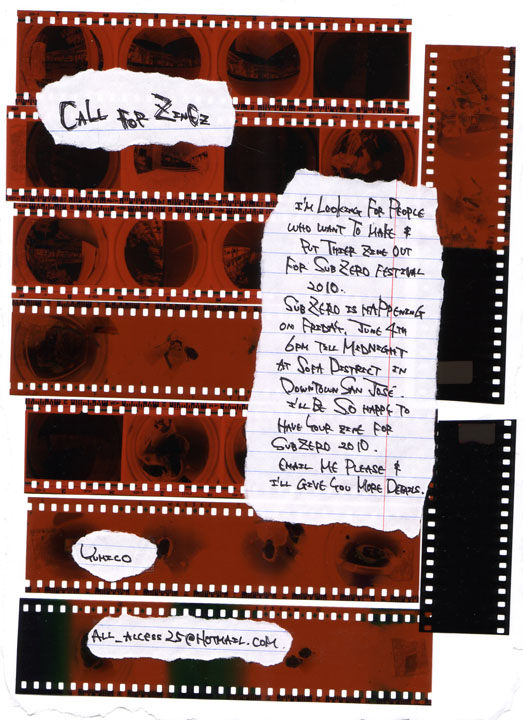 CALL FOR ZINEZ
I'M LOOKING FOR PEOPLE
WHO WANT TO MAKE &
PUT THIER ZINE OUT
FOR SUBZERO FESTIVAL
2010.
SUBZERO IS HAPPENING
ON FRIDAY, JUNE 4TH
6PM TILL MIDNIGHT
AT SOFA DISTRICT IN
DOWNTOWN SAN JOSE.
I'LL BE SO HAPPY TO
HAVE YOUR ZINE FOR
SUBZERO 2010.
EMAIL ME PLEASE &
I'LL GIVE YOU MORE DETAILS.
YUMICO
ALL_ACCESS25@HOTMAIL.COM